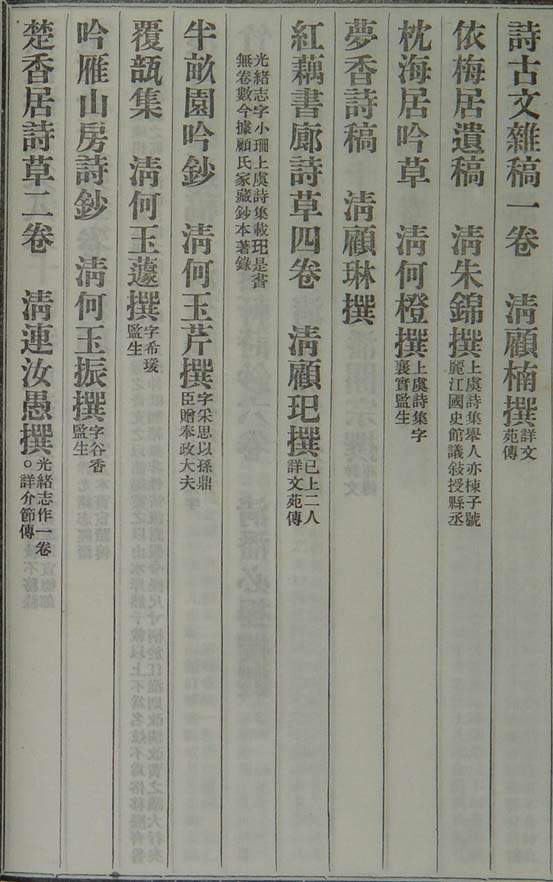 詩古文雜稿一卷　清顧楠撰詳文苑傳
依梅居遺稿　清朱錦撰上虞詩集舉人亦棟子號麗江國史館議敍授縣丞
枕海居吟草　清何橙撰上虞詩集字襄實監生
夢香詩稿　清顧琳撰
紅藕書廊詩草四卷　清顧玘撰已上二人詳文苑傳
光緒志字小珊上虞詩集載玘是書無卷數今據顧氏家藏鈔本著錄
半畝園吟鈔　清何玉芹撰字采思以孫鼎臣贈奉政大夫
覆瓿集　清何玉蘧撰字希瑗監生
吟雁山房詩鈔　清何玉振撰字谷香監生
楚香居詩草二卷　清連汝愚撰光緒志作一卷○詳介節傳